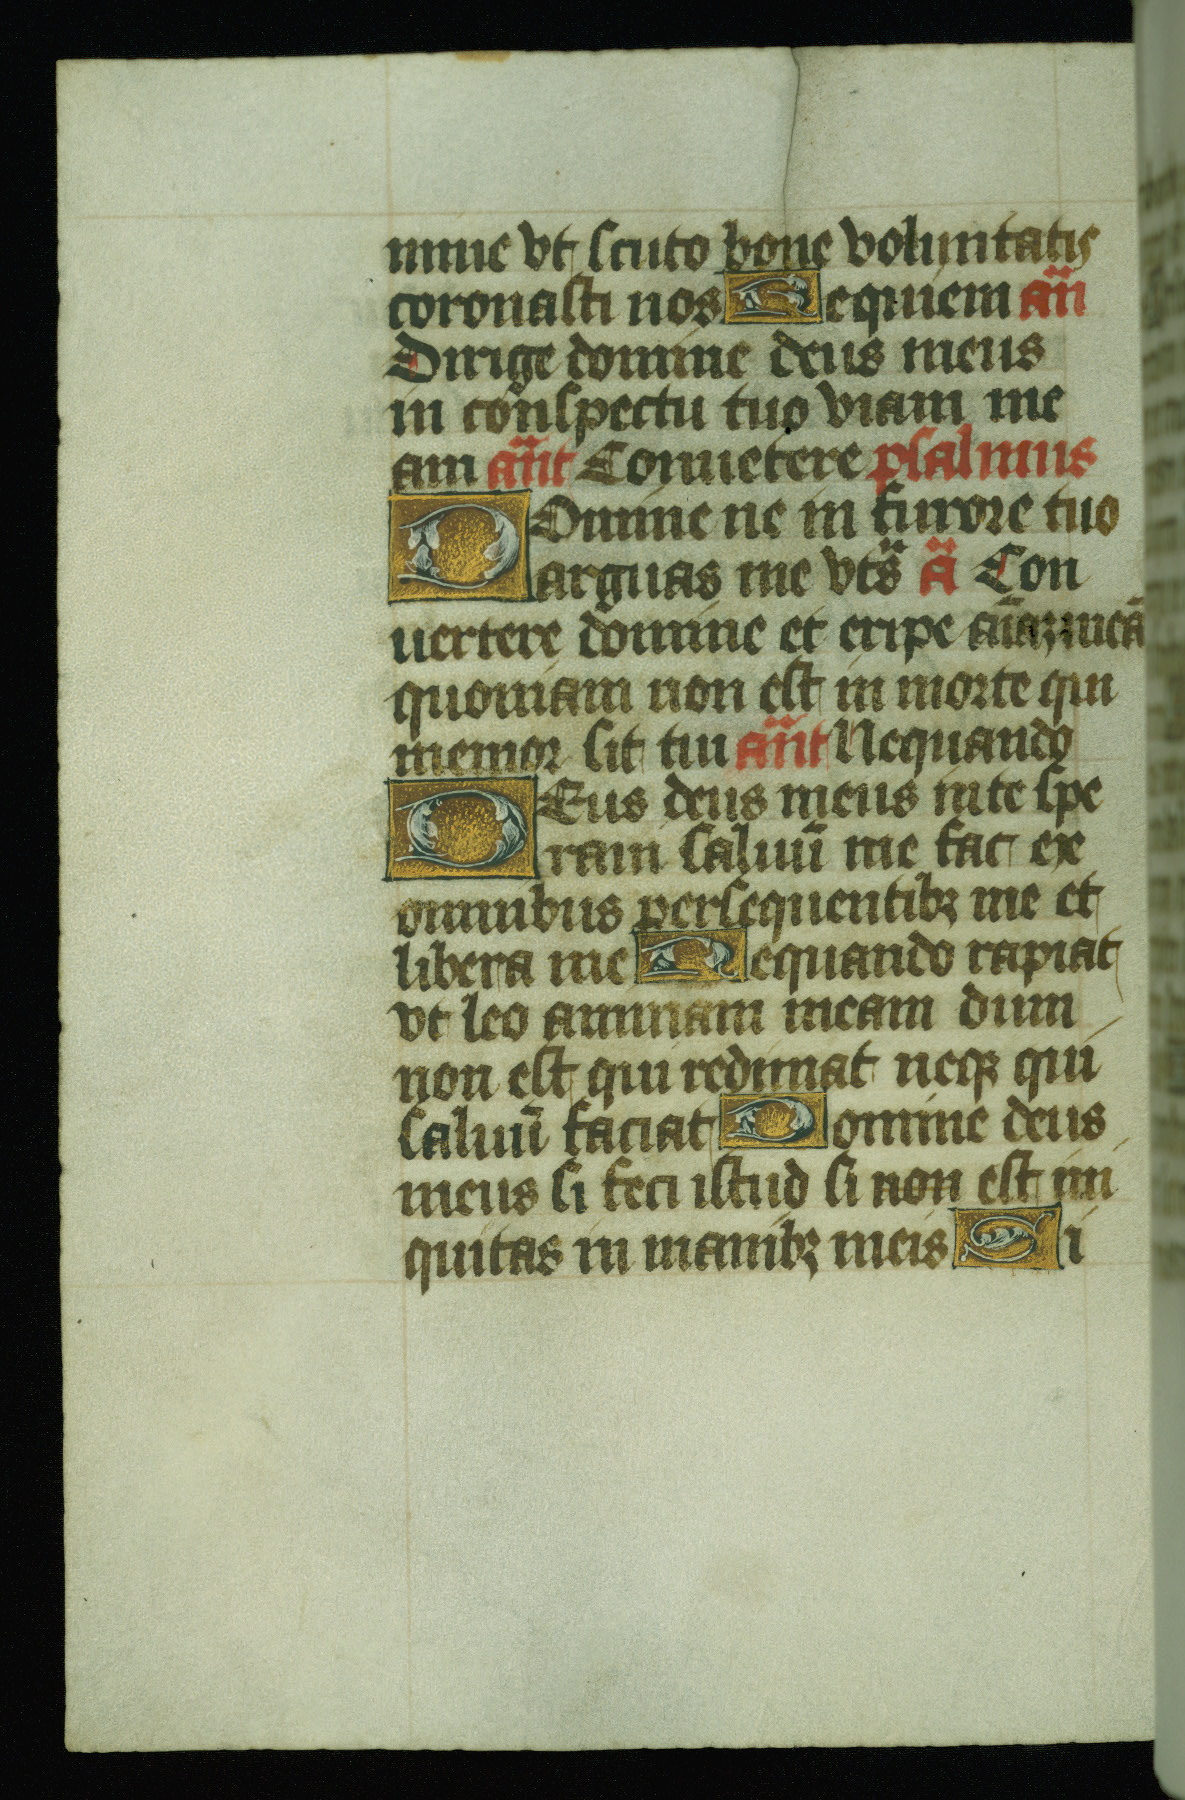 mine vt scuto bone voluntatis
coronasti nos Requiem an̄
Dirige domine deus meus
in conspectu tuo viam me
am an̄t Conuertere psalmus
DOmine ne in furore tuo
arguas me vts̄ ā Con
uertere domine et eripe aīaꝫ meā
quoniam non est in morte qui
memor sit tui an̄t Nequando
DEus deus meus in te spe
raui saluū me fac ex
omnibus persequentibꝫ me et
libera me Nequando rapiat
vt leo animam meam dum
non est qui redimat neqꝫ qui
saluū faciat Domine deus
meus si feci istud si non est ini
quitas in manibꝫ meis Si